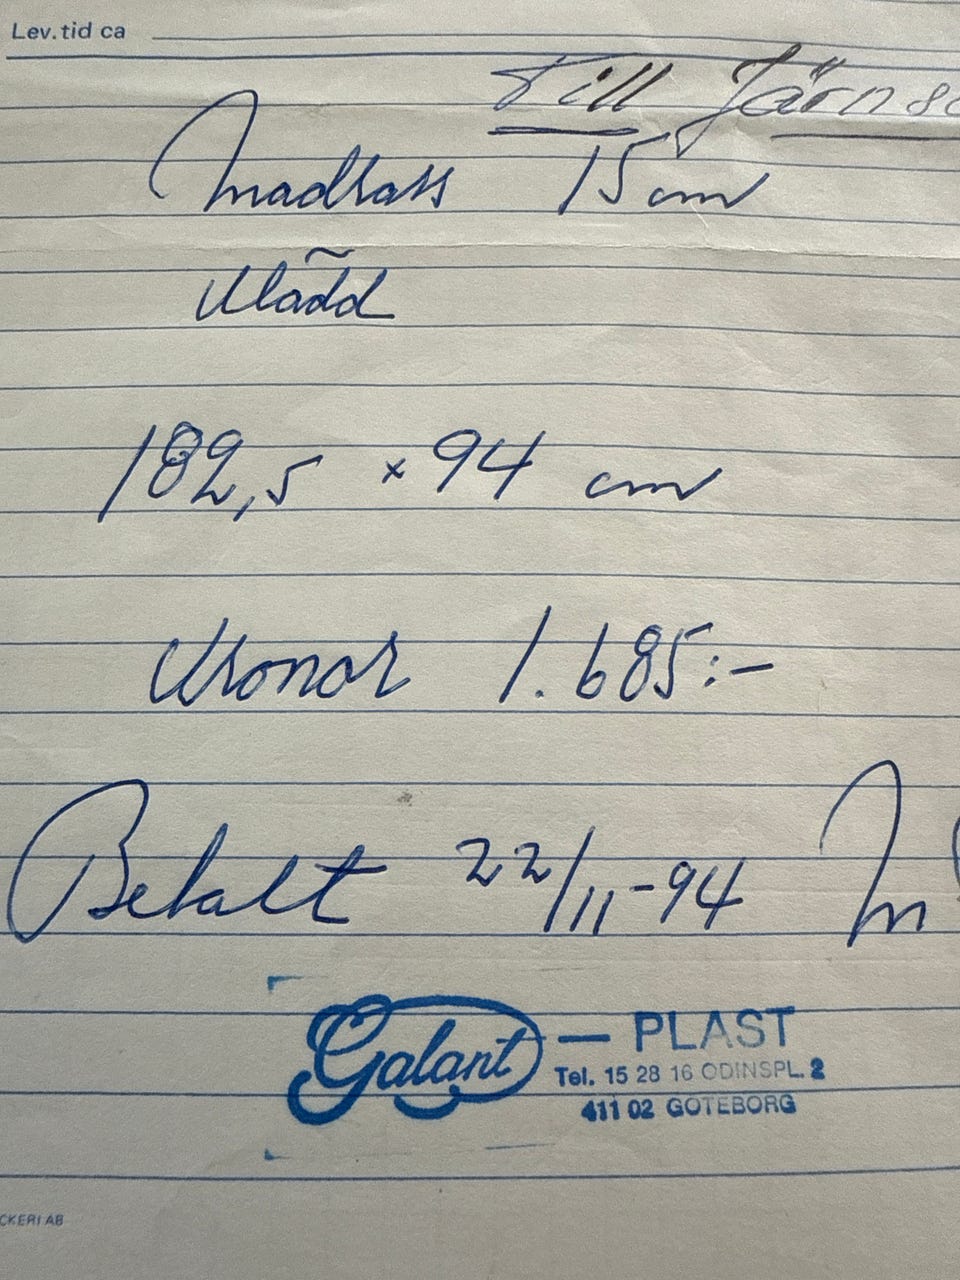 Lev. tid ca
Till Järnsä
Madrass 15 cm
Klädd
182,5 x 94 cm
Kronor 1.685:-
Betalt 22/11-94
Galant — PLAST
Tel. 15 28 16 ODINSPL. 2
411 02 GÖTEBORG
CKERI AB